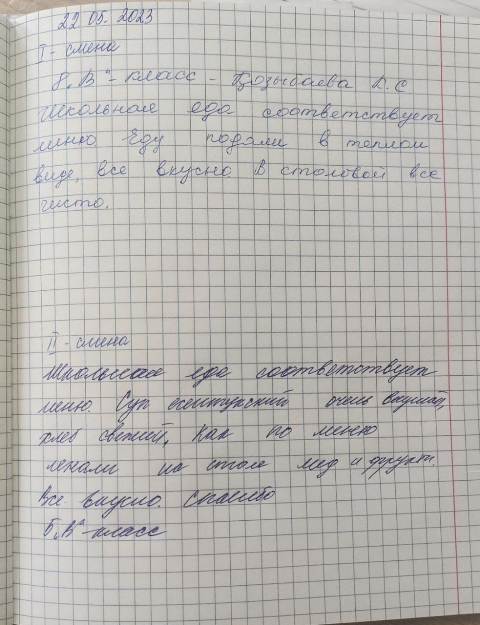 22 05. 2023
I - смена
8 „В" - класс - Козыбаева А. С
Школьная еда соответствует
меню Еду подали в теплом
виде, все вкусно. В столовой все
чисто.
II - смена
Школьная еда соответствует
меню. Суп очень вкусный,
хлеб свежий, как по меню
лежали на столе мед и фрукт.
Все вкусно. Спасибо
5 „В" - класс